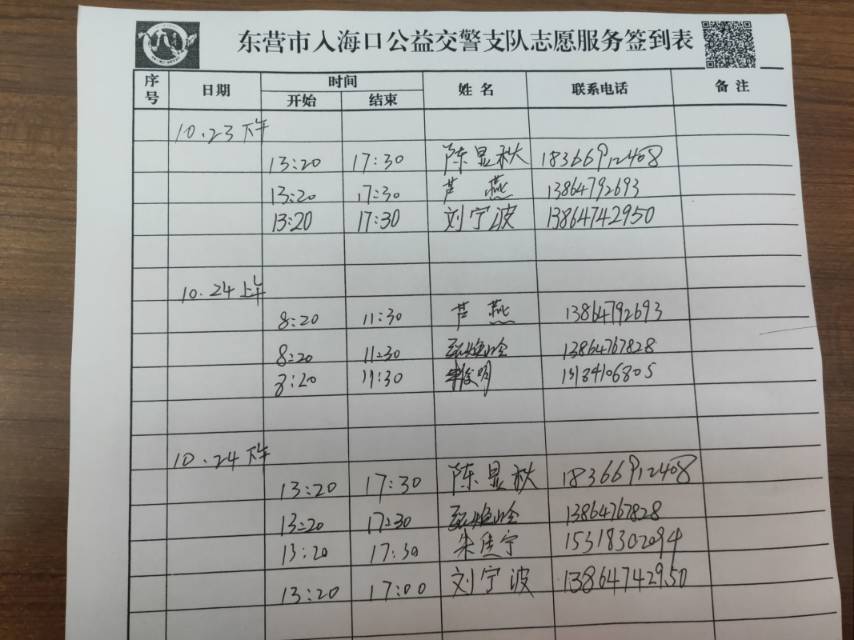 东营市入海口公益交警支队志愿服务签到表
序号 日期 时间 姓名 联系电话 备注
开始 结束
10.23下午
13:20 17:30 陈显秋 18366912408
13:20 17:30 芦燕 13864792693
13:20 17:30 刘宁波 13864742950
10.24上午
8:20 11:30 芦燕 13864792693
8:20 11:30 13864767828
8:20 11:30
10.24下午
13:20 17:30 陈显秋 18366912408
13:20 17:30 13864767828
13:20 17:30 朱佳宁 15318302094
13:20 17:00 刘宁波 13864742950